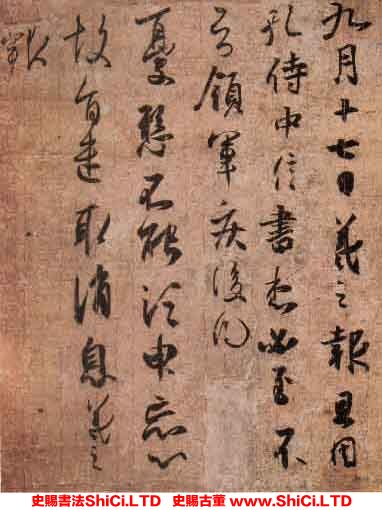 九月十七日羲之報且因
孔侍中信書想必至不
知領軍疾後問
憂懸不能須臾忘心
故旨遣取消息羲之
報
史賜書法ShiCi.LTD 史賜古董 www.ShiCi.LTD